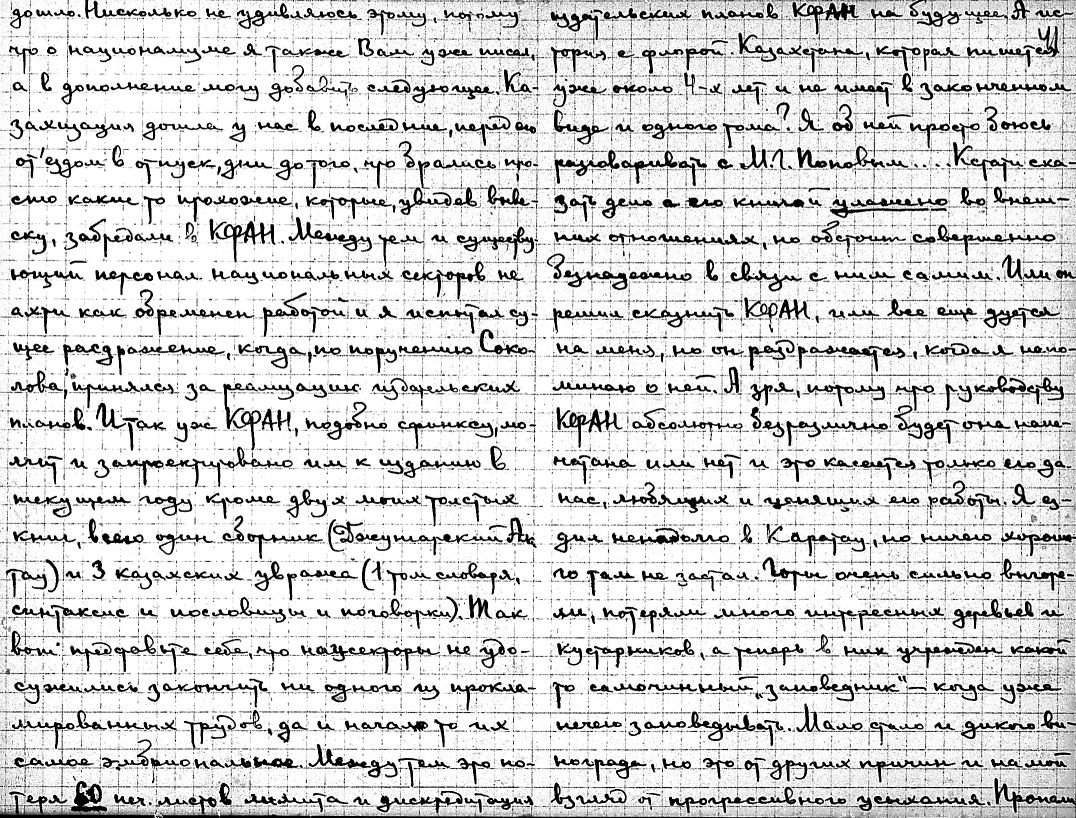 дошло. Нисколько не удивляюсь этому, потому
что о национализме я также Вам уже писал,
а в дополнение могу добавить следующее. Ка-
захизация дошла у нас в последние, перед его
от'ездом в отпуск, дни до того, что брались про-
сто какие то прохожие, которые, увидев выве-
ску, забредали в КФАН. Между тем и существу
ющий персонал национальных секторов не
ахти как обременен работой и я испытал су-
щее раздражение, когда, по поручению Соко-
лова, принялся за реализацию издательских
планов. И так уж КФАН, подобно сфинксу, мо-
лчит и запроектировано им к изданию в
текущем году кроме двух моих толстых
книг, всего один сборник (Джунгарский Ак
тау) и 3 казахских увража (1 том словаря,
синтаксис и пословицы и поговорки). Так
вот представьте себе, что нацсекторы не удо-
сужились закончить ни одного из прокла-
мированных трудов, да и начало то их
самое эмбриональное. Между тем это по-
теря 60 печ. листов лимита и дискредитация
издательских планов КФАН на будущее. А ис-
41
тория с флорой Казахстана, которая пишется
уже около 4-х лет и не имеет в законченном
виде и одного тома? Я об ней просто боюсь
разговаривать с М.Г. Поповым.... Кстати ска-
зать дело с его книгой улажено во внеш-
них отношениях, но обстоит совершенно
безнадежно в связи с ним самим. Или он
решил сказнить КФАН, или все еще дуется
на меня, но он раздражается, когда я напо-
минаю о ней. А зря, потому что руководству
КФАН абсолютно безразлично будет она напе-
чатана или нет и это касается только его да
нас, любящих и ценящих его работы. Я ез-
дил ненадолго в Каратау, но ничего хороше
го там не застал. Горы очень сильно выгоре-
ли, потеряли много интересных деревьев и
кустарников, а теперь в них учрежден какой
то самочинный „заповедник" — когда уже
нечего заповедывать. Мало стало и дикого ви-
нограда, но это от других причин и на мой
взгляд от прогрессивного усыхания. Пропали